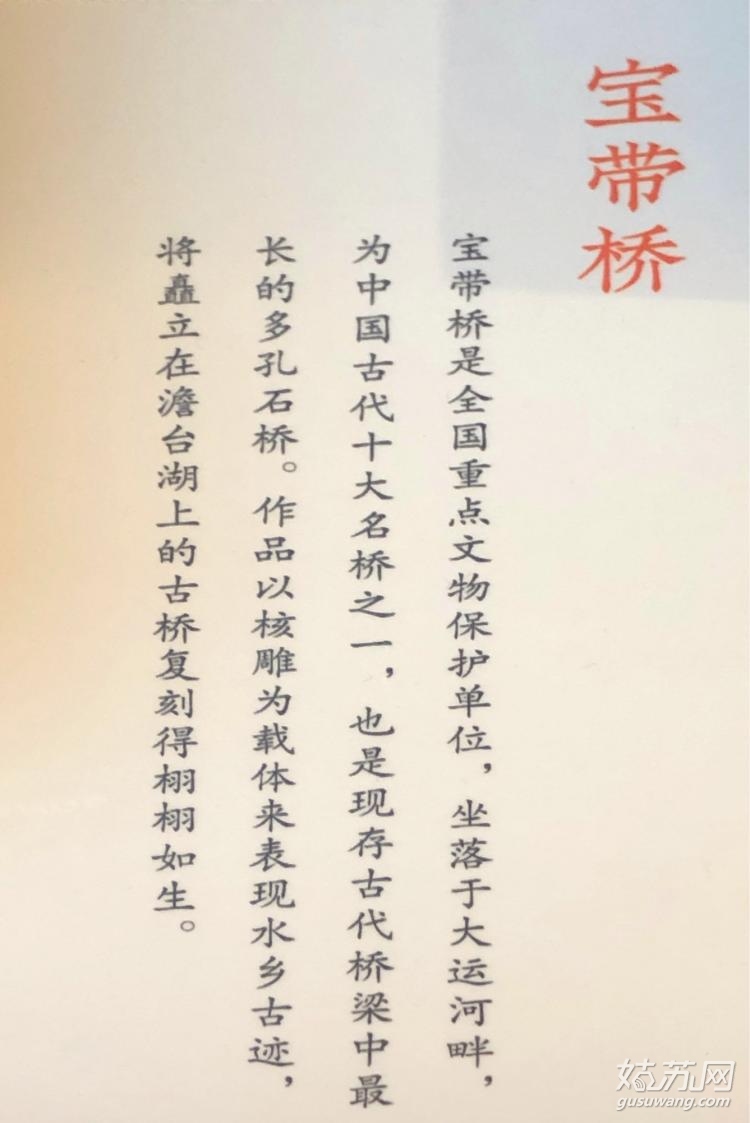 宝带桥
宝带桥是全国重点文物保护单位，坐落于大运河畔，
为中国古代十大名桥之一，也是现存古代桥梁中最
长的多孔石桥。作品以核雕为载体来表现水乡古迹，
将矗立在澹台湖上的古桥复刻得栩栩如生。
姑苏网
gusuwang.com